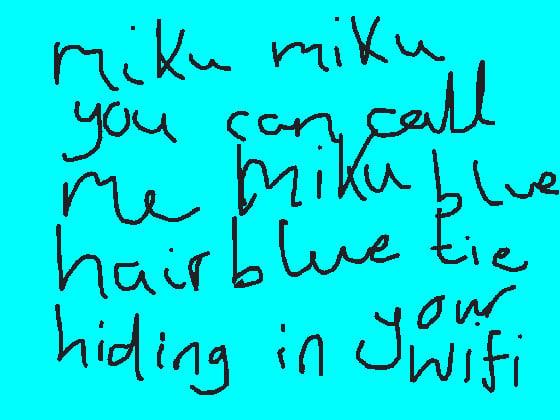 miku miku
you can call
me miku blue
hair blue tie
hiding in your
wifi